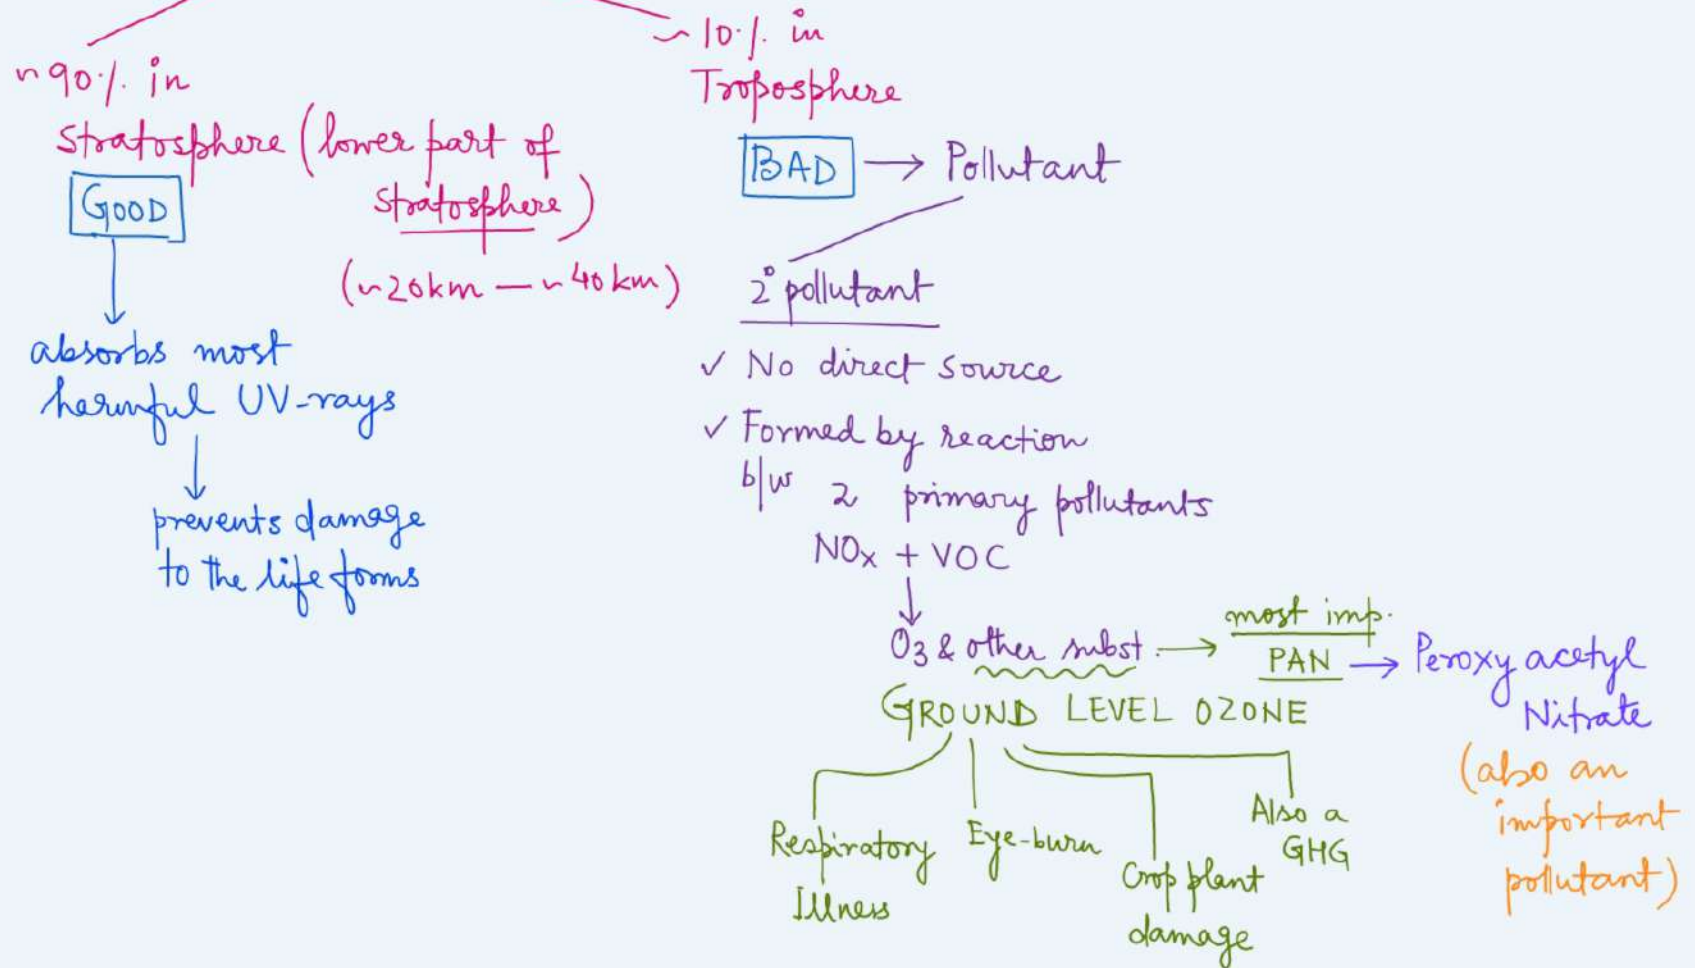 ~90% in
Stratosphere (lower part of
stratosphere)
(~20km — ~40km)
GOOD
absorbs most
harmful UV-rays
prevents damage
to the life forms
~10% in
Troposphere
BAD → Pollutant
2° pollutant
✓ No direct source
✓ Formed by reaction
b/w 2 primary pollutants
NOx + VOC
O3 & other subst. → most imp.
PAN → Peroxy acetyl
Nitrate
(also an
important
pollutant)
GROUND LEVEL OZONE
Respiratory
Illness
Eye-burn
Crop plant
damage
Also a
GHG